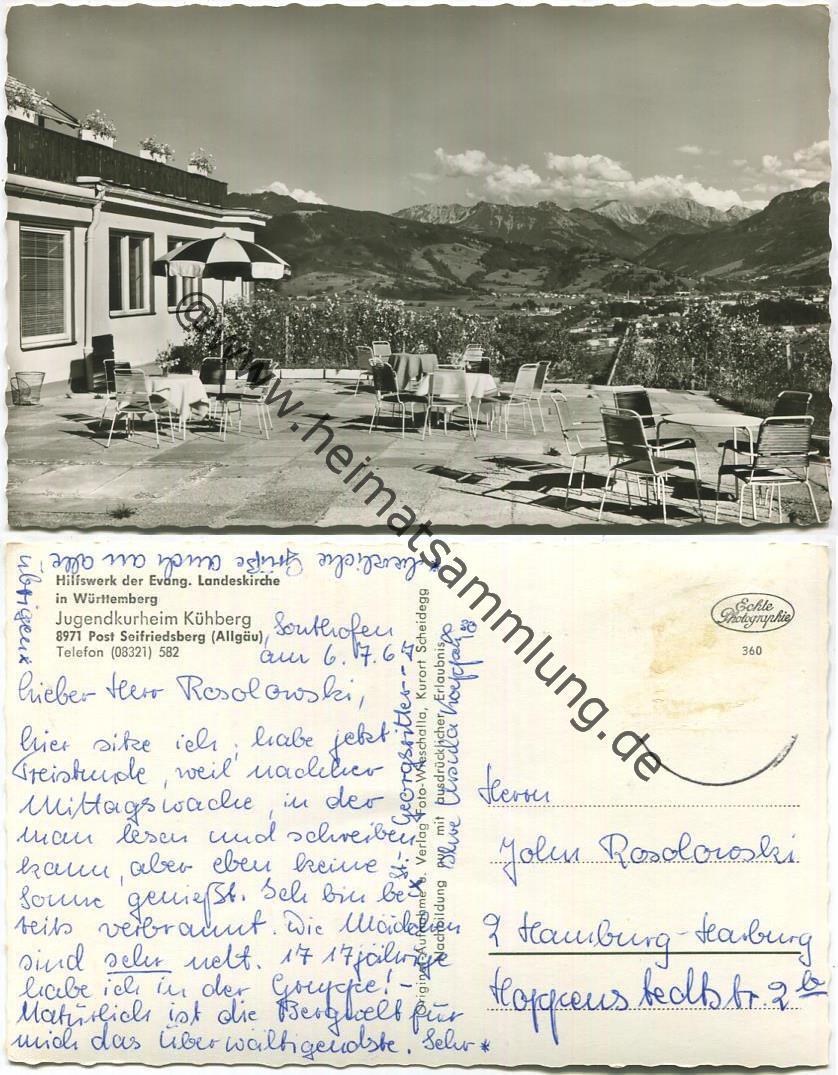 ©www.heimatsammlung.de
Hilfswerk der Evang. Landeskirche
in Württemberg
Jugendkurheim Kühberg
8971 Post Seifriedsberg (Allgäu)
Telefon (08321) 582
Sonthofen
am 6.7.65
Lieber Herr Rosolowski,
hier sitze ich, habe jetzt
Freistunde, weil nachher
Mittagswache, in der
man lesen und schreiben
kann, aber eben keine
Sonne genießt. Ich bin be-
reits verbrannt. Die Mädchen
sind sehr nett. 17 17jährige
habe ich in der Gruppe! -
Natürlich ist die Bergwelt für
mich das Überwältigendste. Sehr *
* herzliche Grüße auch an alle
übrigen *
* St.-Georgsritter - -
Ihre Ursula
Original-Aufnahme u. Verlag Foto-Wieschalla, Kurort Scheidegg
Nachbildung nur mit ausdrücklicher Erlaubnis
Echte
Photographie
360
Herrn
John Rosolowski
2 Hamburg-Harburg
Hoppenstedtstr. 2b